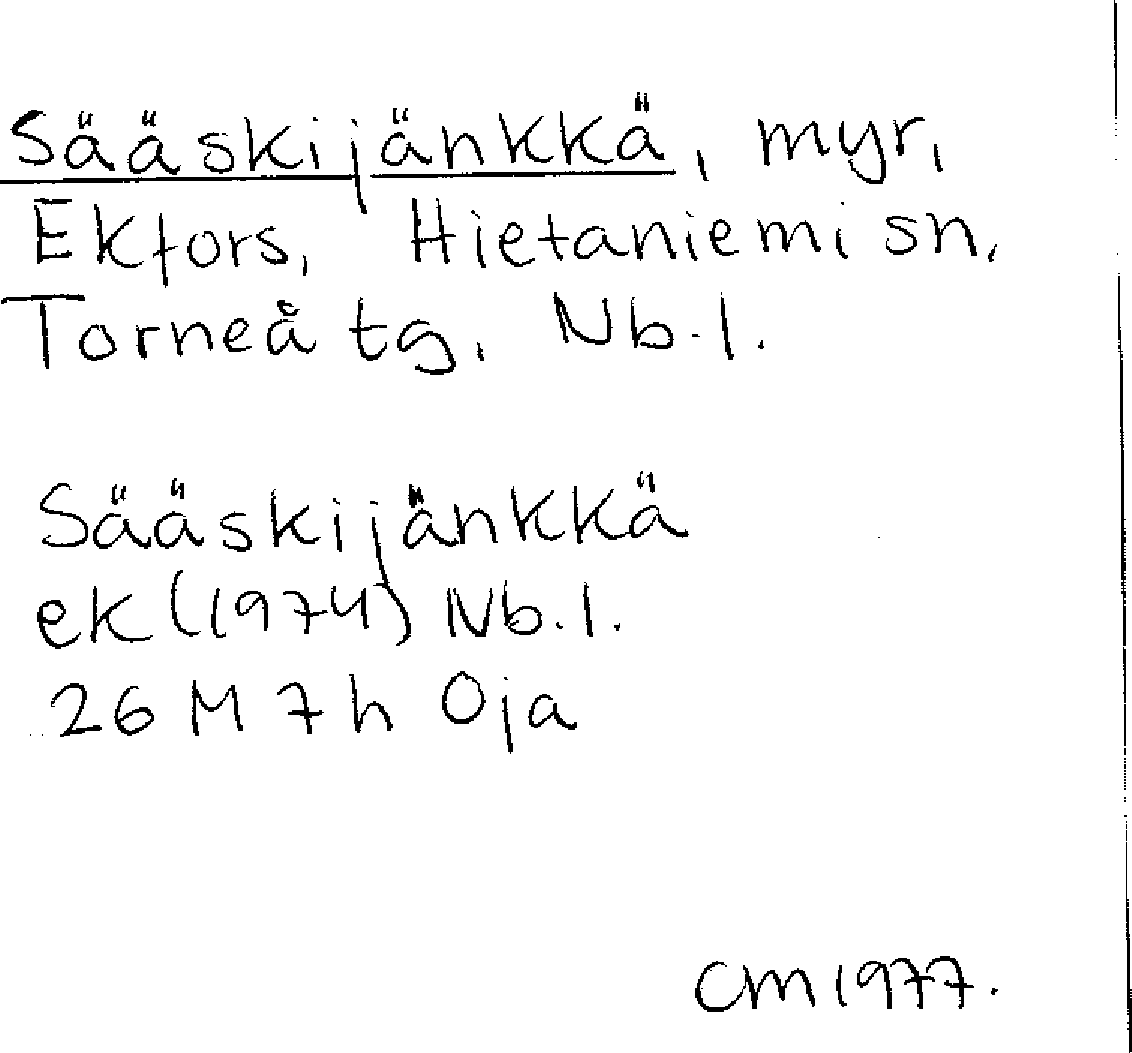 Sääskijänkkä, myr,
Ekfors, Hietaniemi sn,
Torneå tg, Nb.l.
Sääskijänkkä
ek (1974) Nb.l.
26 M 7h Oja
CM 1977.